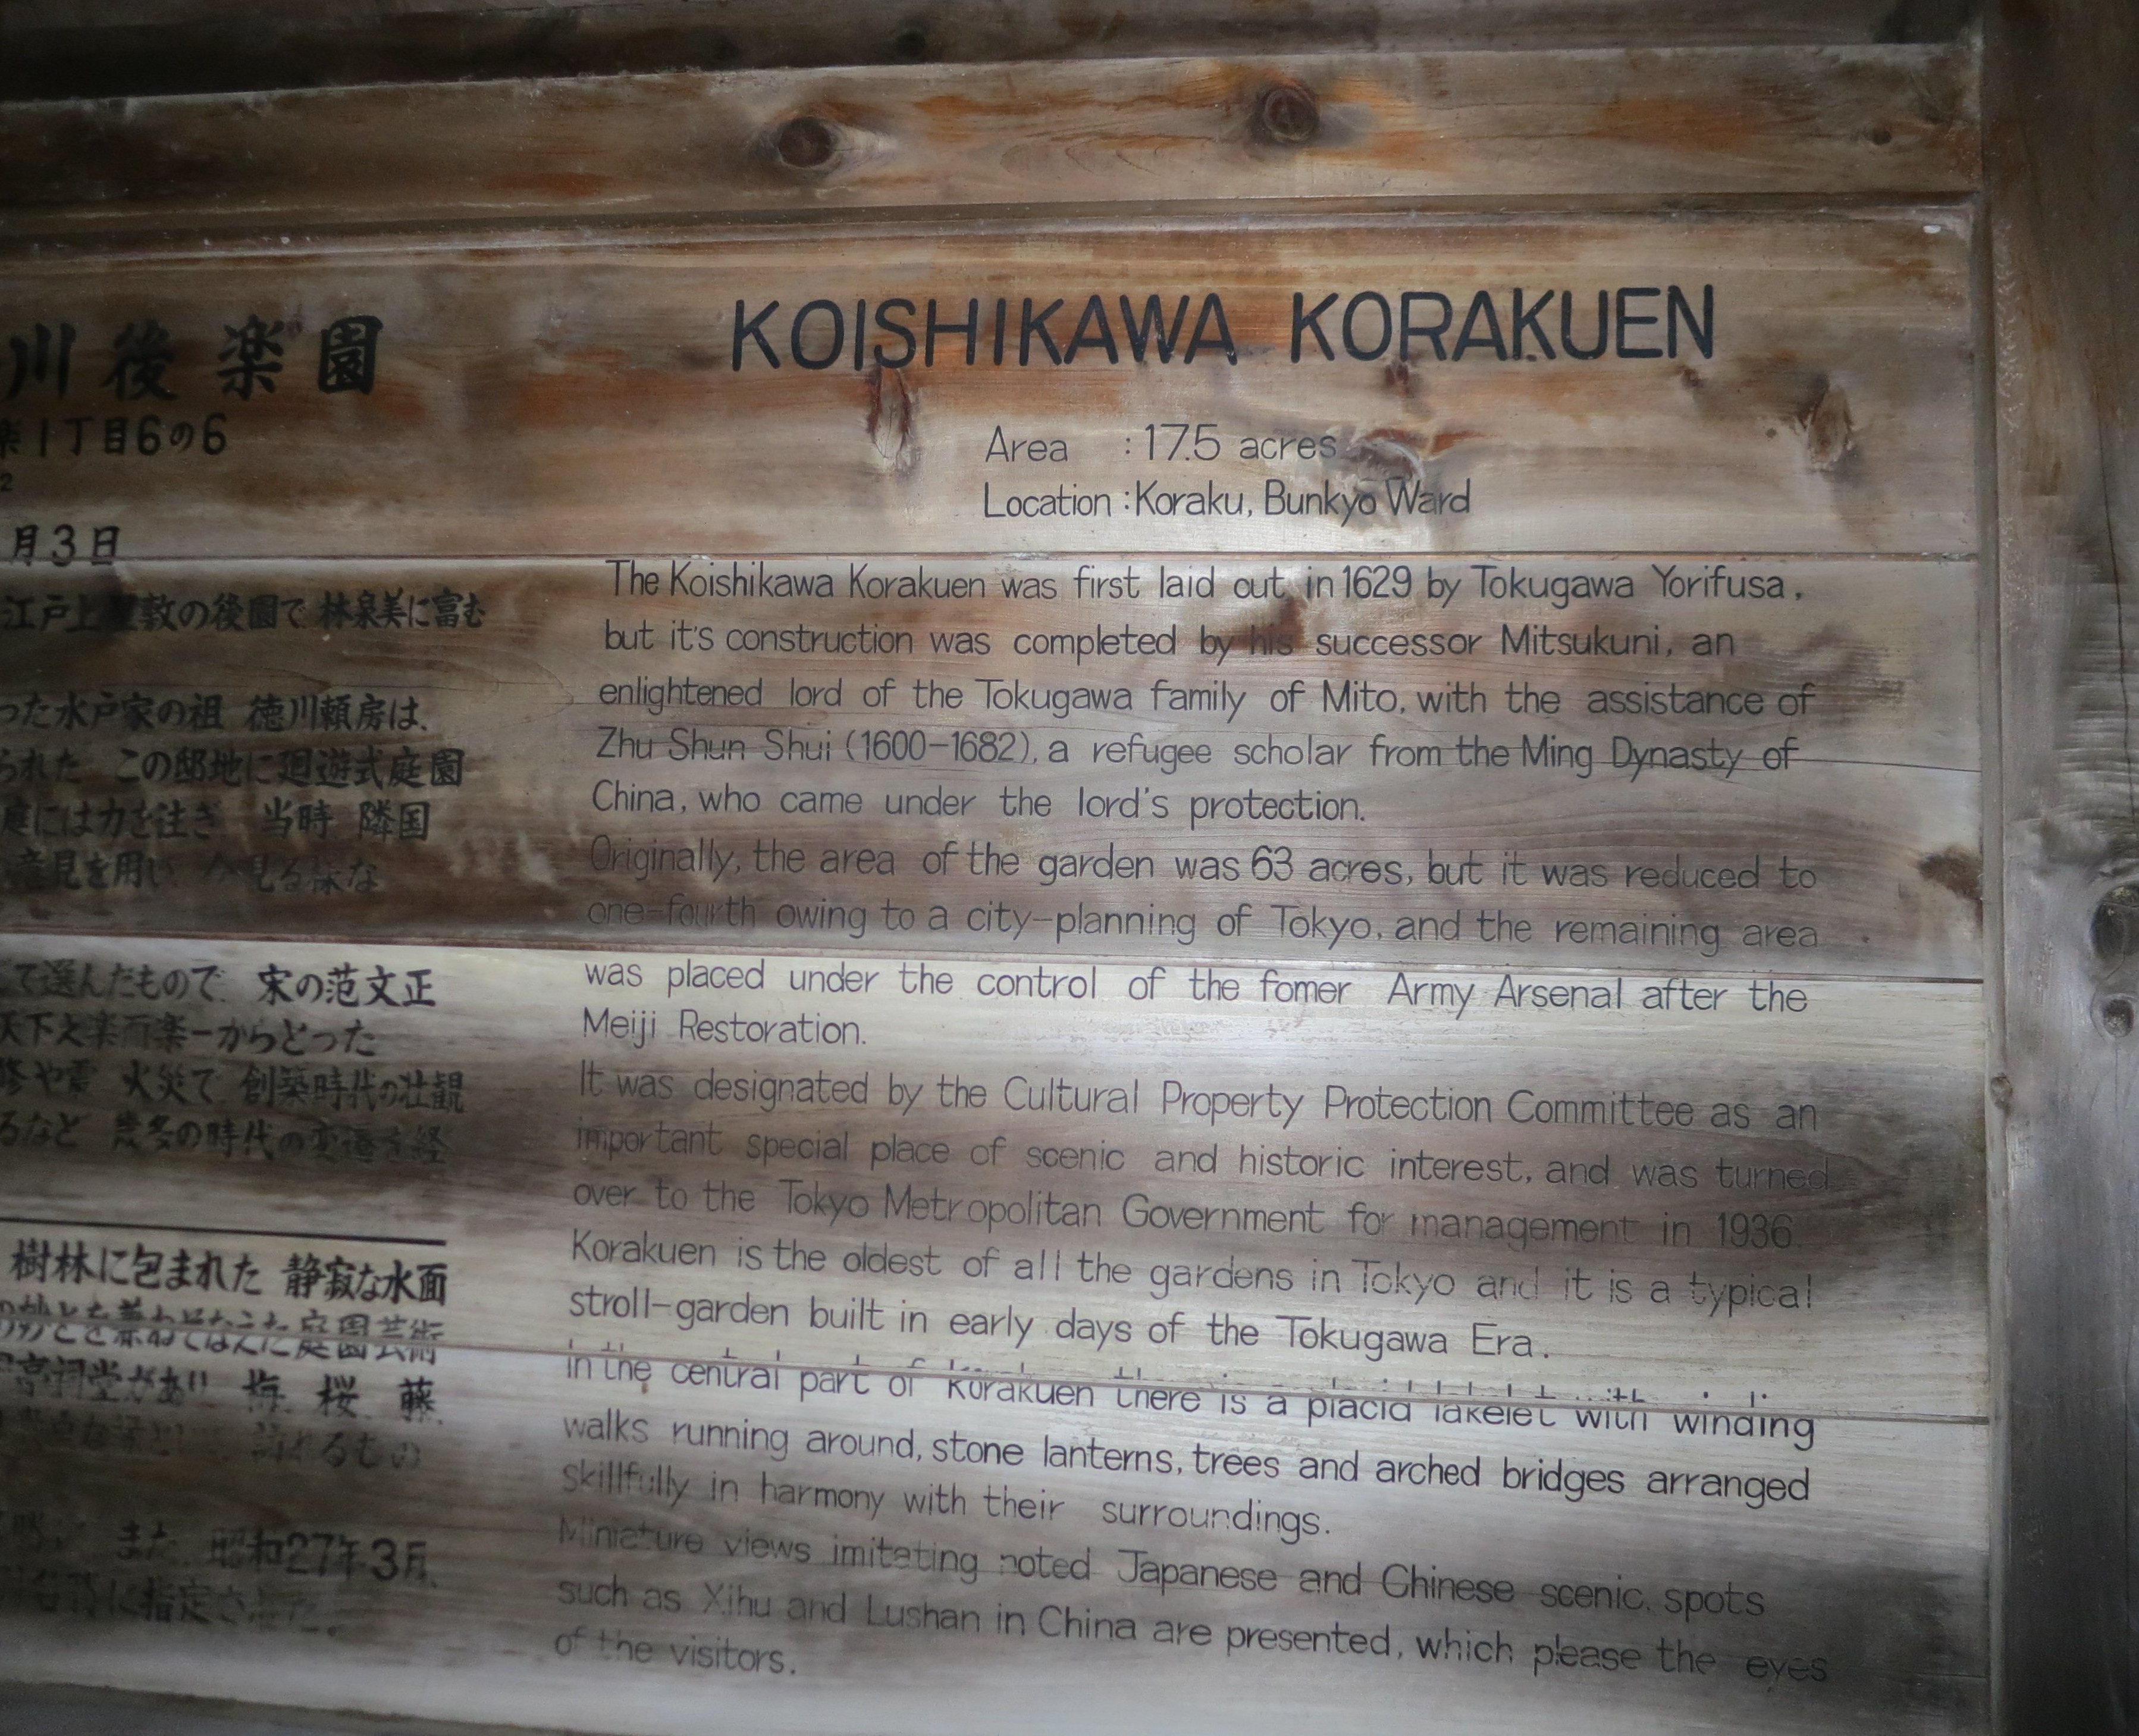 川後楽園
楽1丁目6の6
2
月3日
江戸上屋敷の後園で 林泉美に富む
った水戸家の祖 徳川頼房は、
られた この邸地に廻遊式庭園
庭には力を注ぎ 当時 隣国
意見を用い 今見る様な
て選んだもので 宋の范文正
天下之楽而楽ーからとった
や震 火災で 創築時代の壮観
るなど 幾多の時代の変遷を経
樹林に包まれた 静寂な水面
庭園芸術
祠堂があり 梅 桜 藤
訪れるもの
また 昭和27年3月
に指定された。
KOISHIKAWA KORAKUEN
Area : 17.5 acres
Location : Koraku, Bunkyo Ward
The Koishikawa Korakuen was first laid out in 1629 by Tokugawa Yorifusa,
but it's construction was completed by his successor Mitsukuni, an
enlightened lord of the Tokugawa family of Mito, with the assistance of
Zhu Shun Shui (1600-1682), a refugee scholar from the Ming Dynasty of
China, who came under the lord's protection.
Originally, the area of the garden was 63 acres, but it was reduced to
one-fourth owing to a city-planning of Tokyo, and the remaining area
was placed under the control of the fomer Army Arsenal after the
Meiji Restoration.
It was designated by the Cultural Property Protection Committee as an
important special place of scenic and historic interest, and was turned
over to the Tokyo Metropolitan Government for management in 1936.
Korakuen is the oldest of all the gardens in Tokyo and it is a typical
stroll-garden built in early days of the Tokugawa Era.
In the central part of Korakuen there is a placid lakelet with winding
walks running around, stone lanterns, trees and arched bridges arranged
skillfully in harmony with their surroundings.
Miniature views imitating noted Japanese and Chinese scenic. spots
such as Xihu and Lushan in China are presented, which please the eyes
of the visitors.